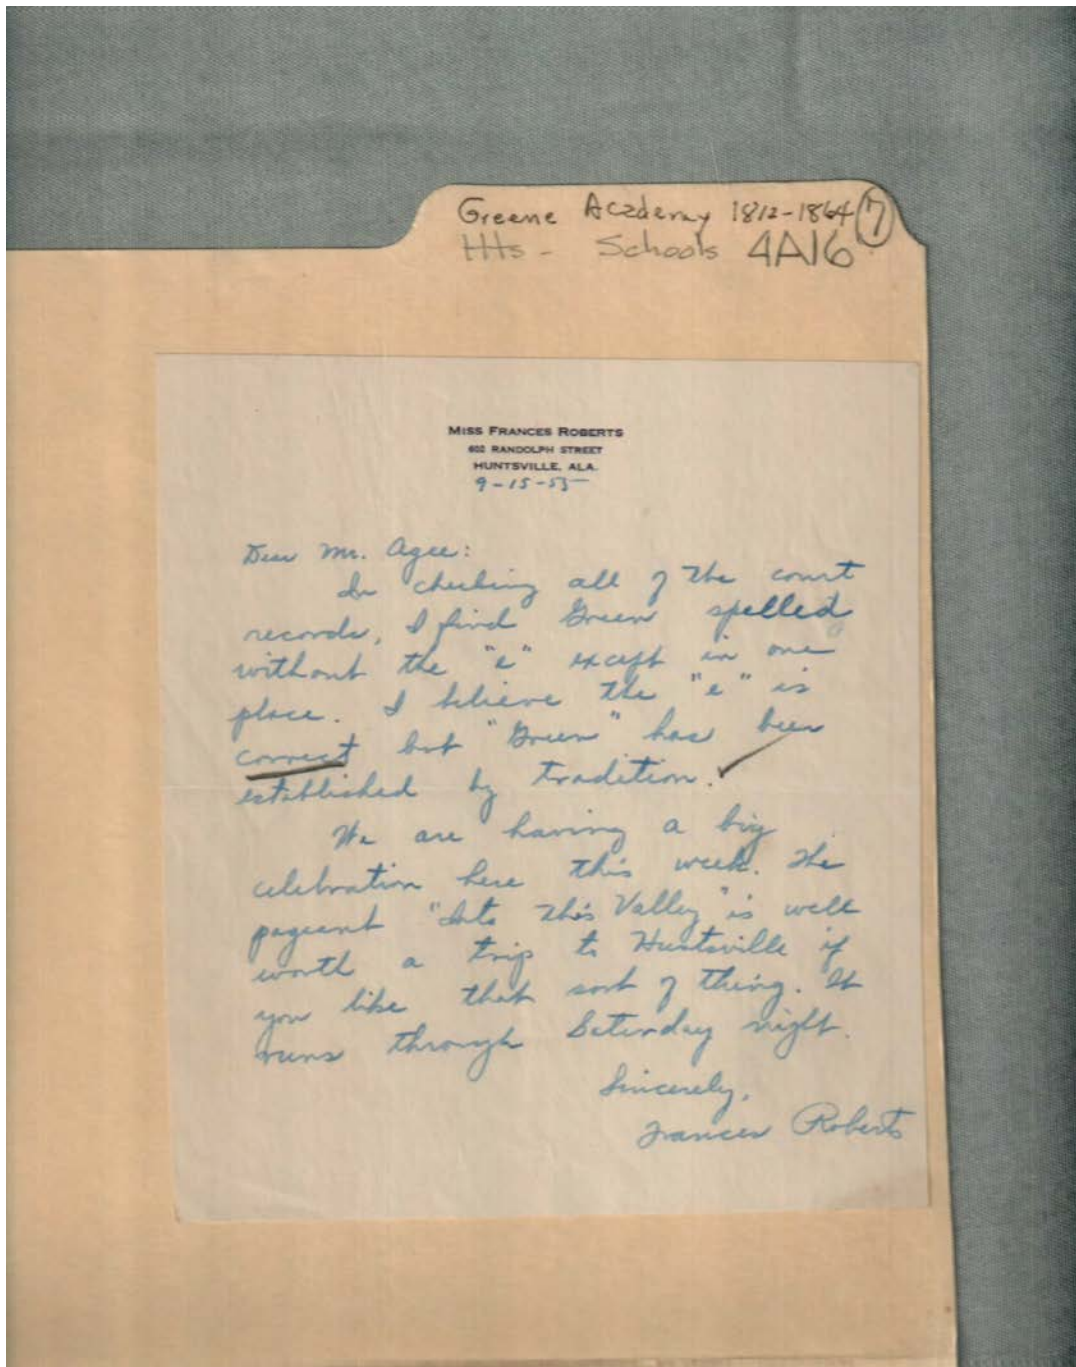 Greene Academy 1812-1864 7
Hts - Schools 4A16
MISS FRANCES ROBERTS
602 RANDOLPH STREET
HUNTSVILLE, ALA.
9-15-55
Dear Mr. Agee:
In checking all of the court
records, I find Green spelled
without the "e" except in one
place. I believe the "e" is
correct but "Green" has been
established by tradition.
We are having a big
celebration here this week. The
pageant "Into This Valley" is well
worth a trip to Huntsville if
you like that sort of thing. It
runs through Saturday night.
Sincerely,
Frances Roberts